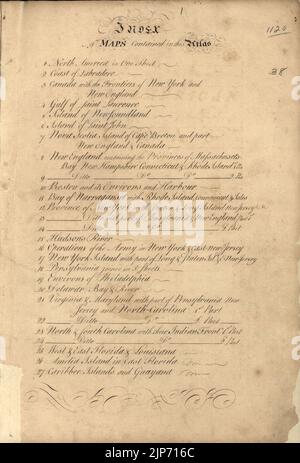 1
Index
1120
of MAPS Contained in this Atlas
38
1 North America in One Sheet
2 Coast of Labradore
3 Canada with the Frontiers of New York and
New England
4 Gulf of Saint Laurence
5 Island of Newfoundland
6 Island of Saint John
7 Nova Scotia Island of Cape Breton and part
New England & Canada
8 New England containing the Provinces of Massachusets
Bay New Hampshire Connecticut & Rhode Island
9 Ditto Do
10 Boston and its Environs and Harbour
11 Bay of Narraganset with Rhode Island
12 Province of New York
13 Ditto part of New England
14 Ditto Do Part
15 Hudsons River
16 Operations of the Army in New York & east New Jersey
17 New York Island with part of Long & Staten Isd & New Jersey
18 Pensylvania 3 Sheets
19 Environs of Philadelphia
20 Delawar Bay & River
21 Virginia & Maryland with part of Pensylvania New
Jersey and North Carolina 1st Part
22 Ditto Do 2 Part
23 North & South Carolina with their Indian Front 1st Part
24 Ditto Do 2 Part
25 West & East Florida & Louisiana
26 Amelia Island in East Florida
27 Caribber Islands and Guayana
alamy
Image ID: 2JP716C
www.alamy.com